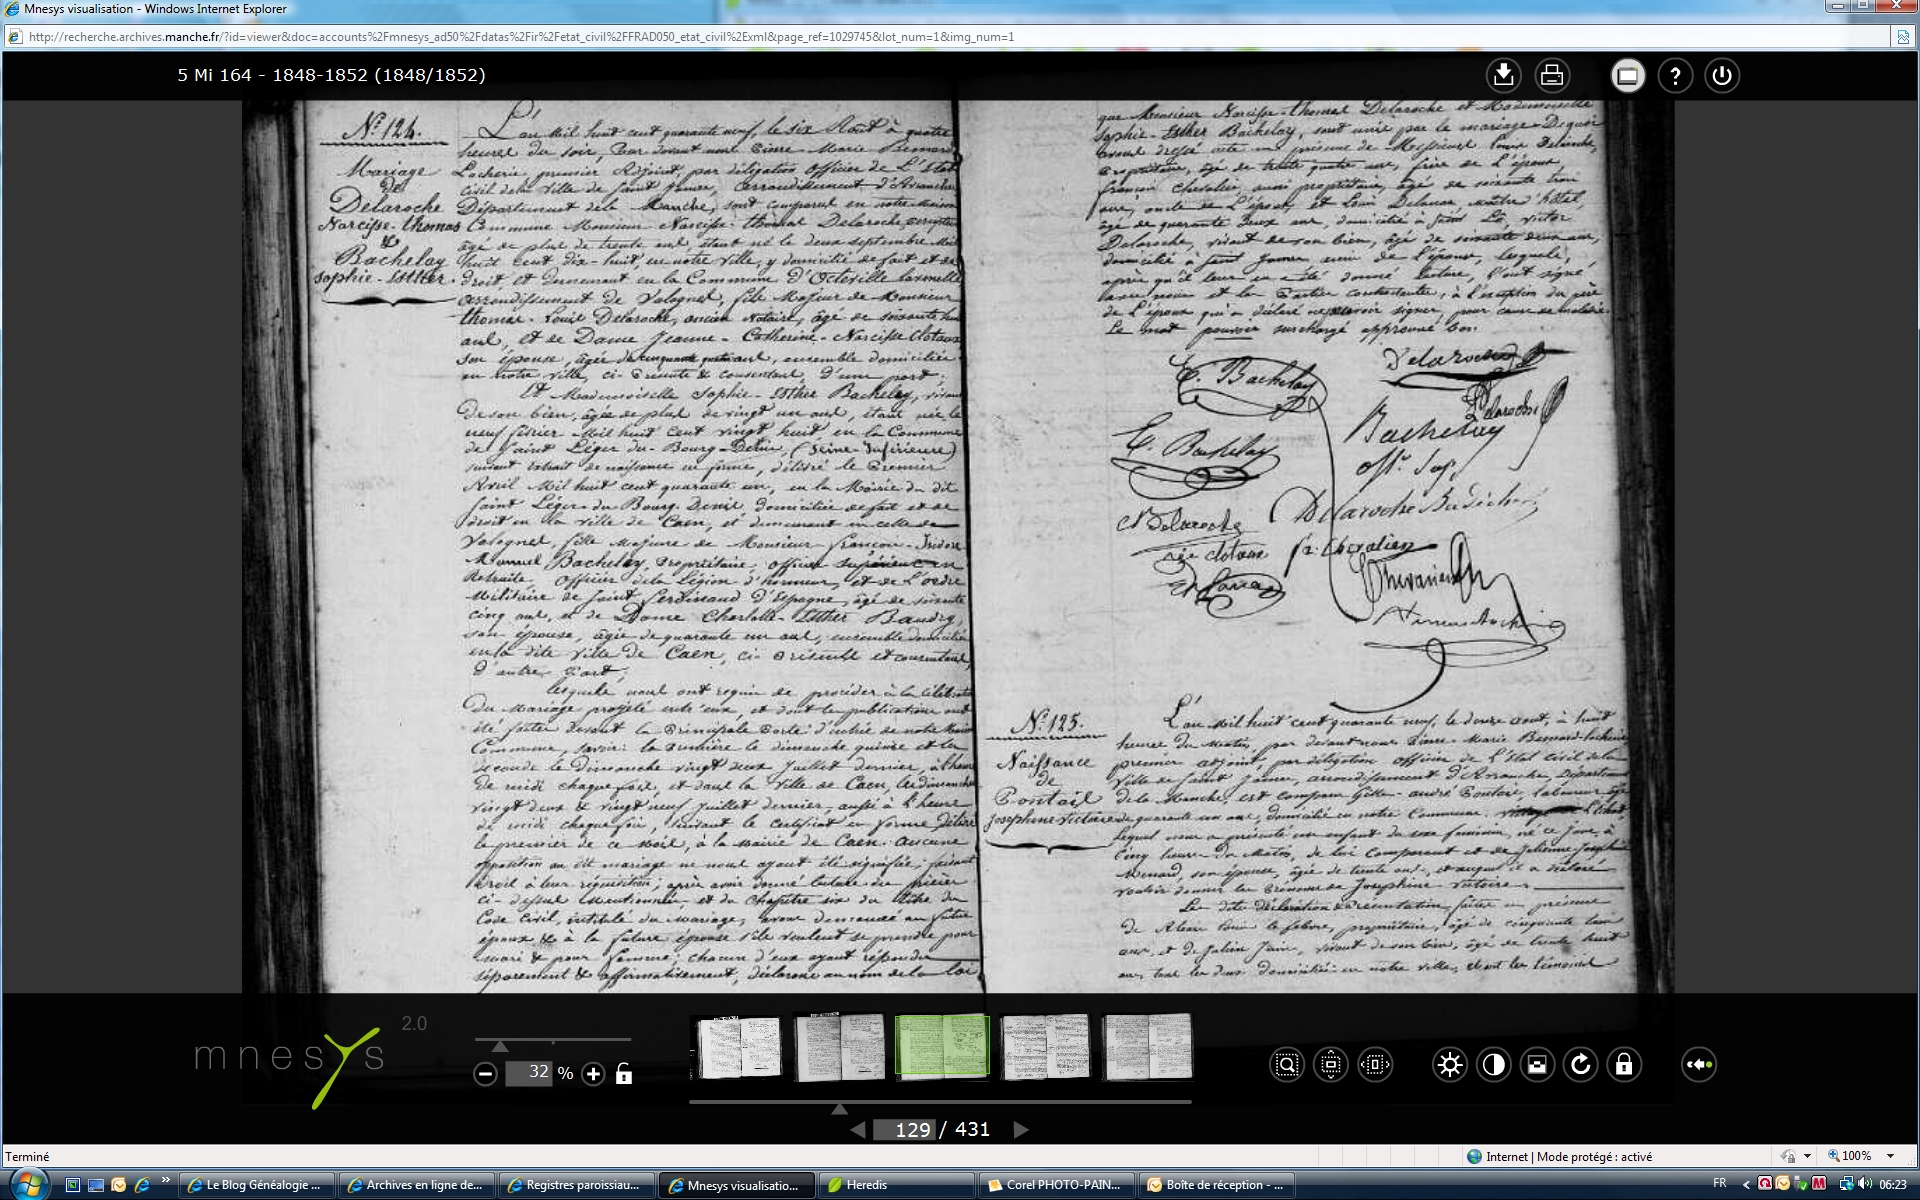 Mnesys visualisation - Windows Internet Explorer
http://recherche.archives.manche.fr/?id=viewer&doc=accounts%2Fmnesys_ad50%2Fdatas%2Fir%2Fetat_civil%2FFRAD050_etat_civil%2Exml&page_ref=1029745&lot_num=1&img_num=1
5 Mi 164 - 1848-1852 (1848/1852)
?
N° 124.
Mariage
de
Delaroche
Narcisse-thomas
&
Bachelay
Sophie-Esther.
L'an Mil huit cent quarante neuf, le six Août à quatre
heures du soir, Par devant nous Pierre-Marie
Lacherie, premier Adjoint, par délégation officier de L'Etat
Civil de la Ville de Saint James, arrondissement d'Avranches
Département de la Manche, sont comparus en notre maison
Commune Monsieur Narcisse-thomas Delaroche,
âgé de plus de trente ans, étant né le deux septembre Mil
huit cent dix-huit, en notre ville, y domicilié de fait et de
droit et demeurant en la Commune d'Octeville
arrondissement de Valognes, fils Majeur de Monsieur
thomas-Louis Delaroche, ancien Notaire, âgé de soixante
ans, et de Dame Jeanne-Catherine-Narcisse Clotaux
son épouse, âgée de cinquante ans, ensemble domiciliés
en notre ville, ci-présents & consentans, d'une part;
Et Mademoiselle Sophie-Esther Bachelay, vivant
de son bien, âgée de plus de vingt un ans, étant née le
neuf février Mil huit cent vingt huit en la Commune
de Saint Léger-du-Bourg-Denis, (Seine-Inférieure)
suivant extrait de naissance en forme, délivré le premier
Avril Mil huit cent quarante un, en la Mairie du dit
Saint Léger-du-Bourg-Denis, domiciliée de fait et de
droit en la ville de Caen, et demeurant en celle de
Valognes, fille Majeure de Monsieur françois-Isidore
Bachelay, Propriétaire, officier supérieur en
Retraite, officier de la Légion d'honneur, et de L'ordre
Militaire de Saint Ferdinand d'Espagne, âgé de soixante
cinq ans, et de Dame Charlotte-Esther Baudry,
son épouse, âgée de quarante un ans, ensemble domiciliés
en la dite ville de Caen, ci-présents et consentans,
d'autre part;
Lesquels nous ont requis de procéder à la célébration
du Mariage projeté entr'eux, et dont les publications ont
été faites devant la Principale Porte d'entrée de notre Maison
Commune, savoir: la première le dimanche quinze et la
seconde le Dimanche vingt deux Juillet dernier, à l'heure
de midi chaque fois, et dans la Ville de Caen, les dimanches
vingt deux & vingt neuf Juillet dernier, aussi à l'heure
de midi chaque fois, suivant le certificat en forme délivré
le premier de ce Mois, à la Mairie de Caen. aucune
opposition au dit mariage ne nous ayant été signifiée, faisant
droit à leur réquisition; après avoir donné lecture des pièces
ci-dessus Mentionnées, et du Chapitre six du titre du
Code Civil, intitulé du Mariage, avons demandé au futur
époux & à la future épouse s'ils veulent se prendre pour
mari & pour femme; chacun d'eux ayant répondu
séparément & affirmativement, déclarons au nom de la loi
que Monsieur Narcisse-thomas Delaroche et Mademoiselle
Sophie-Esther Bachelay, sont unis par le mariage. De quoi
avons dressé acte en présence de Messieurs Louis Delaroche,
propriétaire, âgé de trente quatre ans, frère de L'époux,
françois Chevalier, aussi propriétaire, âgé de soixante trois
ans, oncle de L'époux, et Louis Delanoe maître d'hôtel,
âgé de quarante deux ans, domicilié à Saint Lô, Victor
Delaroche, vivant de son bien, âgé de soixante deux ans,
domicilié à Saint James, ami de l'époux, lesquels,
après qu'il leur en a été donné lecture, l'ont signé
avec nous et les Parties contractantes, à l'exception du père
de L'époux qui a déclaré ne pouvoir signer, pour cause de maladie.
Le mot pouvoir surchargé approuvé bon.
E. Bachelay
Delaroche
Delaroche
E. Bachelay
Bachelay
Offr. Sup.
N Delaroche
Delaroche
Clotaux
fr. Chevalier
N° 125.
Naissance
de
Pontail
Josephine Victoire
L'an Mil huit cent quarante neuf, le douze août, à huit
heures du Matin, par devant nous Pierre-Marie
premier adjoint, par délégation officier de L'Etat Civil de la
Ville de Saint James, arrondissement d'Avranches, Département
de la Manche, est comparu Gilles-André Pontail, laboureur âgé
de quarante un ans, domicilié en notre Commune,
Lequel nous a présenté un enfant du sexe féminin, né ce jour, à
Cinq heures du Matin, de lui Comparant et de Julienne Josephine
Menard, son épouse, âgée de trente ans, et auquel il a déclaré
vouloir donner les Prénoms de Josephine Victoire.
Les dites déclaration & Présentation faites en présence
de Louis Le febvre, propriétaire, âgé de cinquante
ans, et de Julien Juin, vivant de son bien, âgé de trente huit
ans, tous les deux domiciliés en notre ville, étant les témoins
mnesys 2.0
32 %
129 / 431
Terminé
Internet | Mode protégé : activé
100%
Le Blog Généalogie ...
Archives en ligne de...
Registres paroissiau...
Mnesys visualisatio...
Heredis
Corel PHOTO-PAIN...
Boîte de réception - ...
FR
06:23